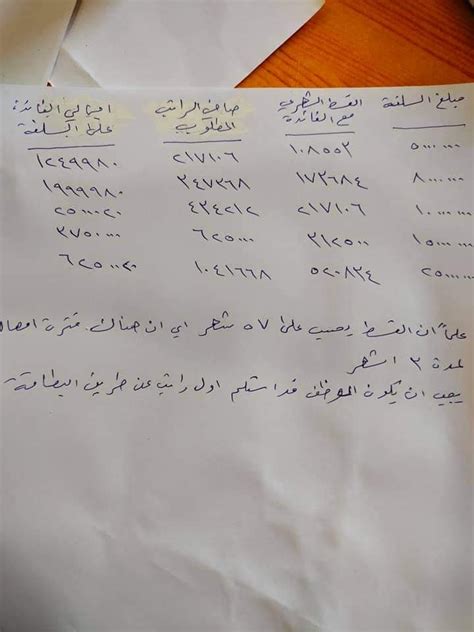 مبلغ السلفة القسط الشهري صافي الراتب اجمالي الفائدة:
مع الفائدة المطلوب على السلفة
٥٠٠٠٠٠٠ ١٠٨٥٥٣ ٢١٧١٠٦ ١٢٤٩٩٨٠
٨٠٠٠٠٠٠ ١٧٣٦٨٤ ٣٤٧٣٦٨ ١٩٩٩٩٨٠
١٠٠٠٠٠٠٠ ٢١٧١٠٦ ٤٣٤٢١٢ ٢٥٠٠٠٢٠
١٥٠٠٠٠٠٠ ٣١٢٥٠٠ ٦٢٥٠٠٠ ٣٧٥٠٠٠٠
٢٥٠٠٠٠٠٠ ٥٢٠٨٣٤ ١٠٤١٦٦٨ ٦٢٥٠٠٢٠
علماً ان القسط يحسب على ٥٧ شهر اي ان هناك فترة امها
لمدة ٣ اشهر
يجب ان يكون الموظف قد استلم اول راتب عن طريق البطاقة